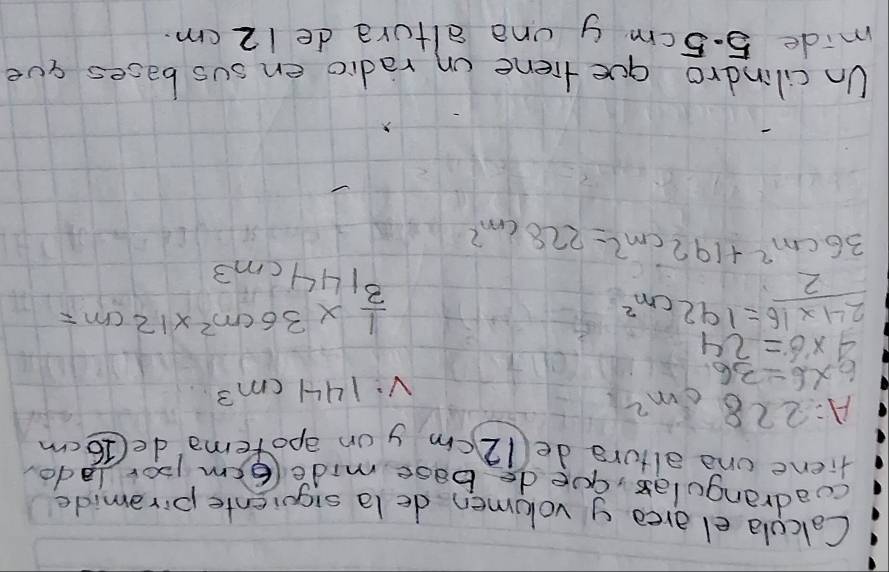 Calcula el area y volumen de la siguiente piramide
cuadrangular, que de base mide 6cm por lado,
tiene una altura de 12cm y un apotema de 16cm
A: 228 cm²
V: 144 cm³
6x6=36
4x6=24
24x16/2=192cm²
1/3 x 36cm²x12cm=
144cm³
36cm²+192cm²=228cm²
Un cilindro que tiene un radio en sus bases que
mide 5.5cm y una altura de 12cm.